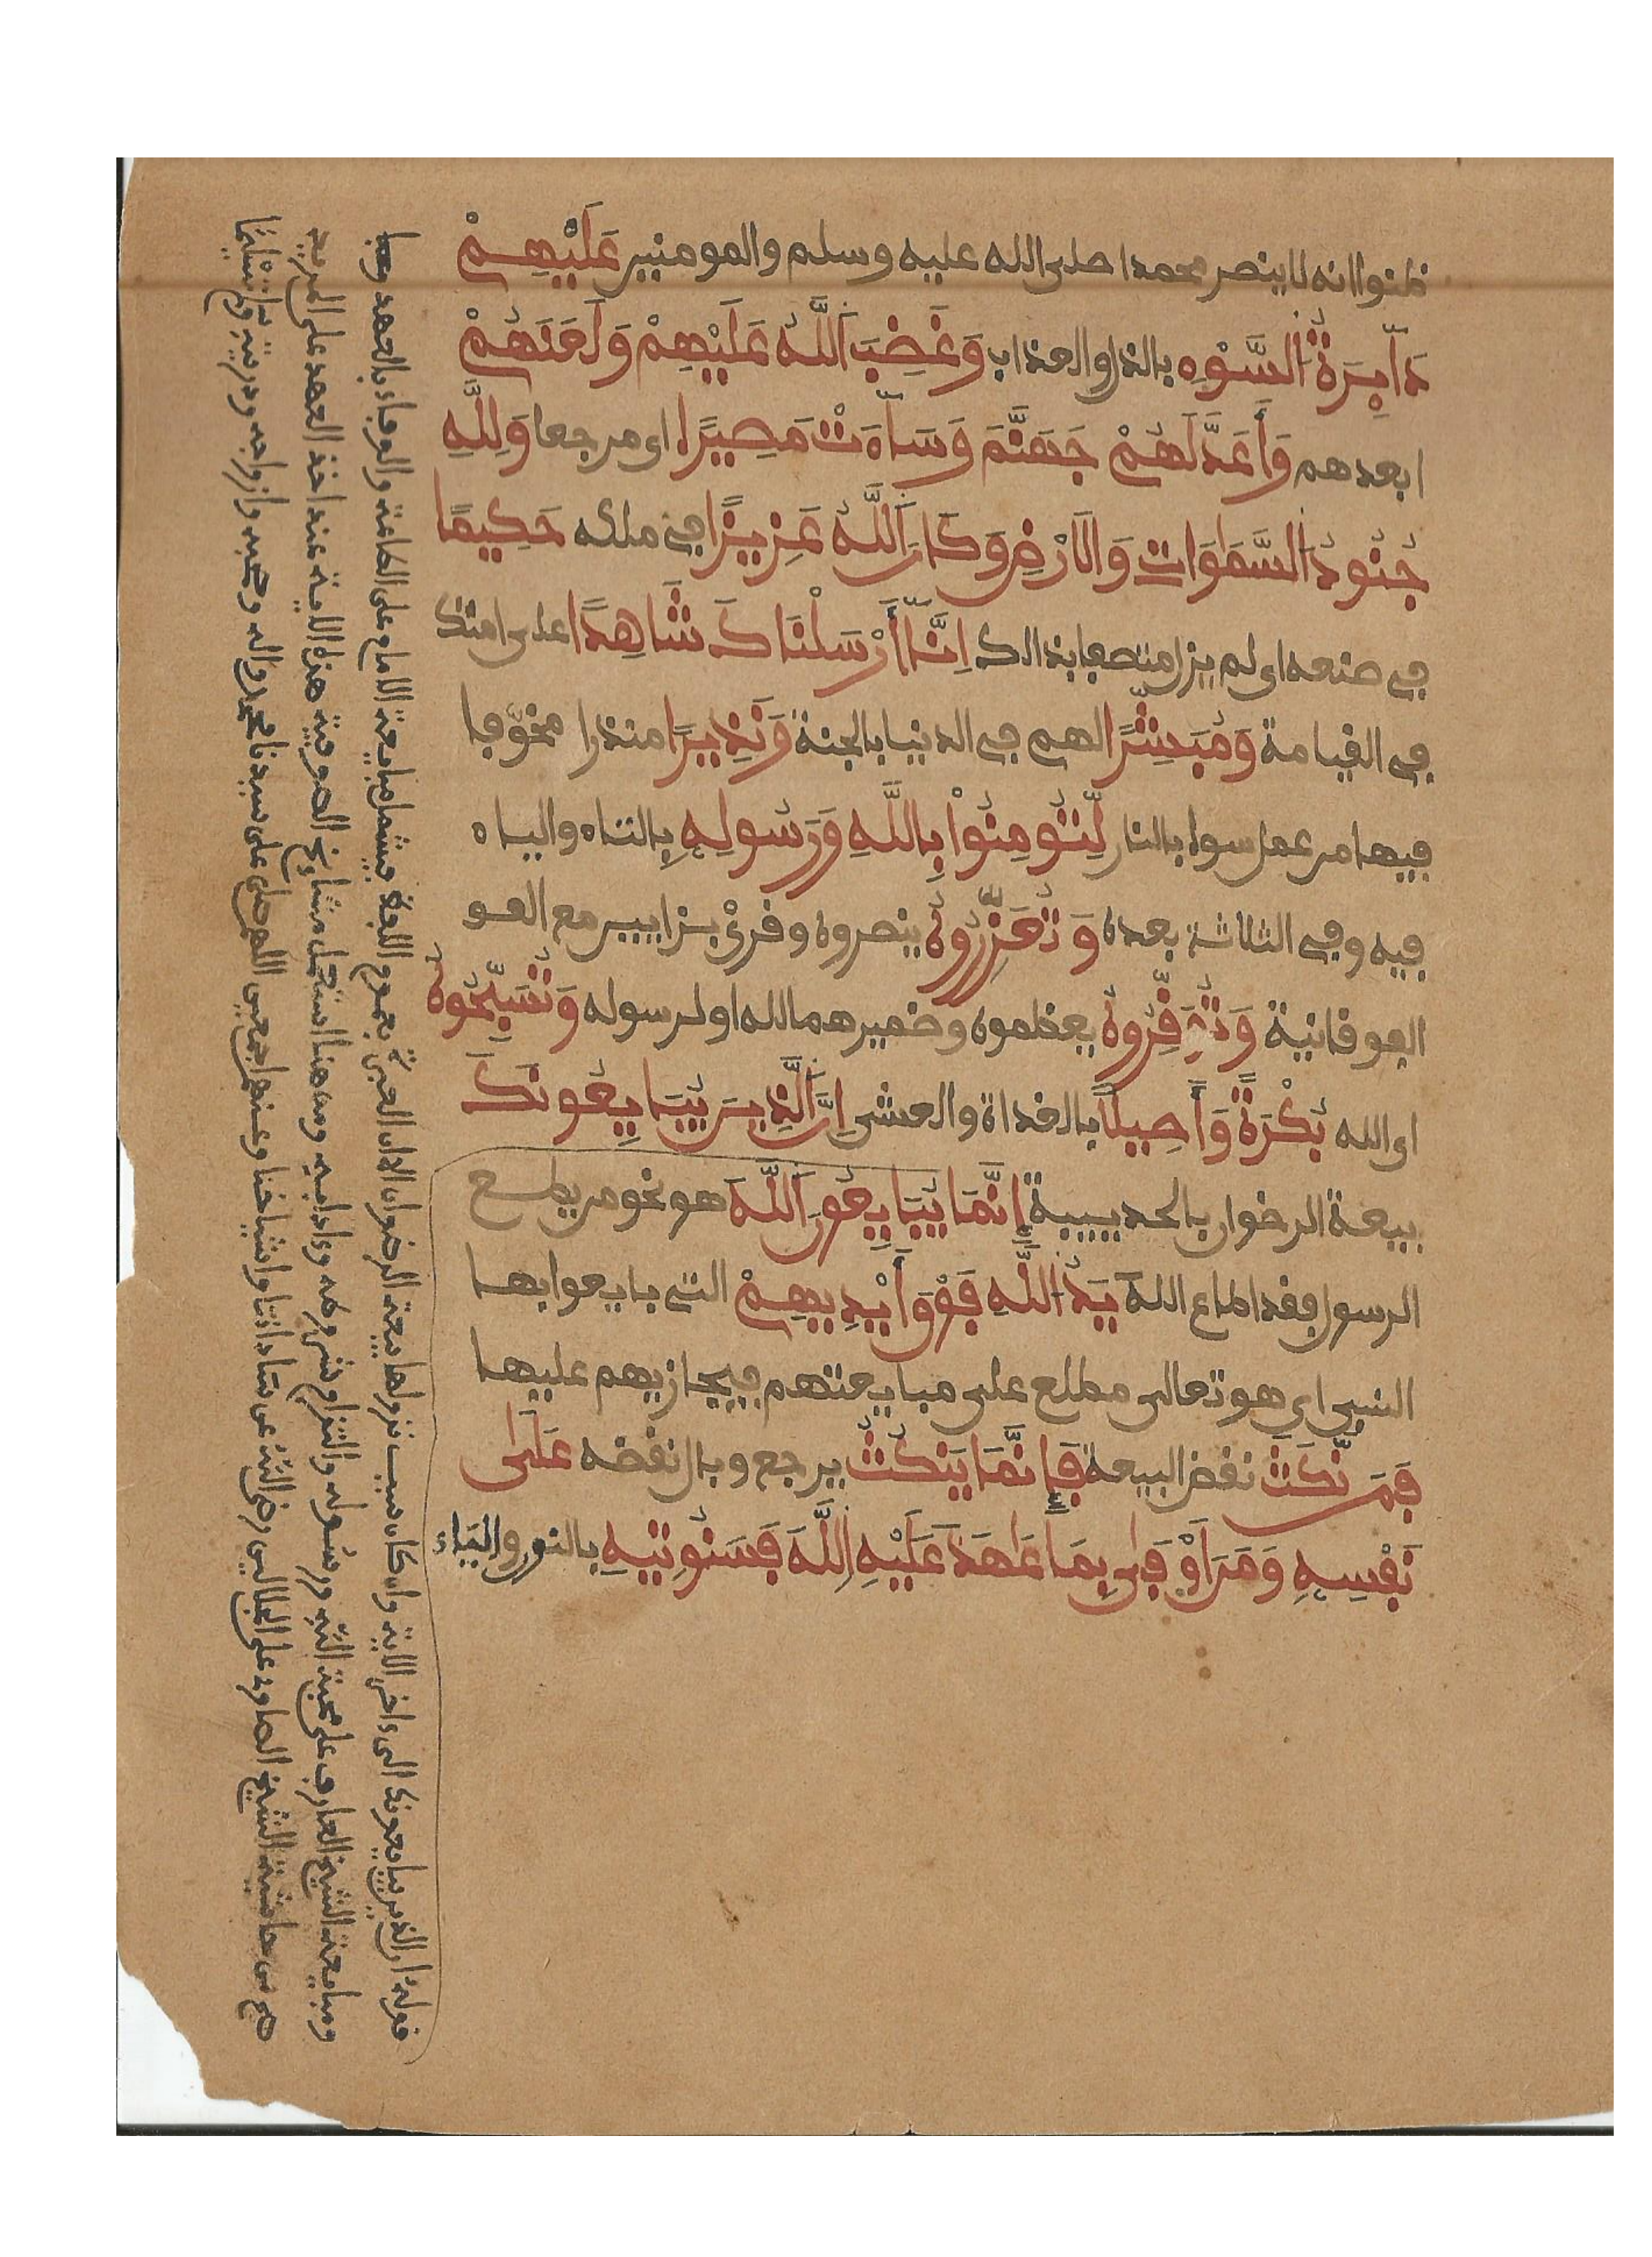 ظنوا انه لا ينصر محمدا صلى الله عليه وسلم والمومنين عَلَيْهِمْ
دَآيِرَةُ السَّوْءِ بالذل والعذاب وَغَضِبَ اَللَّهُ عَلَيْهِمْ وَلَعَنَهُمْ
ابعدهم وَأَعَدَّ لَهُمْ جَهَنَّمَ وَسَآءَتْ مَصِيرًا اى مرجعا وَلِلَّهِ
جُنُودُ السَّمَوَاتِ وَالَارْضِ وَكَانَ اَللَّهُ عَزِيزًا في ملكه حَكِيمًا
في صنعه اى لم يزل متصفا بذالك اِنَّآ أَرْسَلْنَاكَ شَاهِدًا على امتك
في القيامة وَمُبَشِّرًا لهم في الدنيا بالجنة وَنَذِيرًا منذرا مخوّفا
فيها من عمل سوا بالنار لِّتُومِنُواْ بِاللَّهِ وَرَسُولِهِ بالتاء والياء
فيه وفي الثلاثة بعده وَتُعَزِّرُوهُ ينصروه وقرئ بزايين مع الفو
الفوقانية وَتُوَقِّرُوهُ يعظموه وضميرهما لله او لرسوله وَتُسَبِّحُوهُ
اى الله بُكْرَةً وَأَصِيلًا بالغداة والعشى اِنَّ اَلَّذِينَ يُبَايِعُونَكَ
بيعة الرضوان بالحديبية إِنَّمَا يُبَايِعُونَ اَللَّهَ هو نحو من يطع
الرسول فقد اطاع الله يَدُ اللَّهِ فَوْقَ أَيْدِيهِمْ التي بايعوا بها
النبي اي هو تعالى مطلع على مبايعتهم فيجازيهم عليها
فَمَن نَّكَثَ نقض البيعة فَإِنَّمَا يَنكُثُ يرجع وبال نقضه عَلَىٰ
نَفْسِهِ وَمَنَ اَوْفَىٰ بِمَا عَاهَدَ عَلَيْهِ اللَّهَ فَسَنُوتِيهِ بالنون والياء
قوله ان الذين يبايعونك الى ءاخر الاية وان كان سبب نزولها بيعة الرضوان الا ان العبرة بعموم اللفظ فيشمل مبايعة الامام على الطاعة والوفاء بالعهد
ومبايعة الشيخ العارف على محبة الله ورسوله والتزام شروطه وءادابه ومن هنا استعمل مشايخ الصوفية هذه الاية عند اخذ العهد على المريد
من حاشية الشيخ الصاوي على الجلالين رضى الله عن ساداتنا واشياخنا وعنهم اجمعين اللهم صل على سيدنا محمد واله وصحبه وازواجه وذريته وسلم تسليما